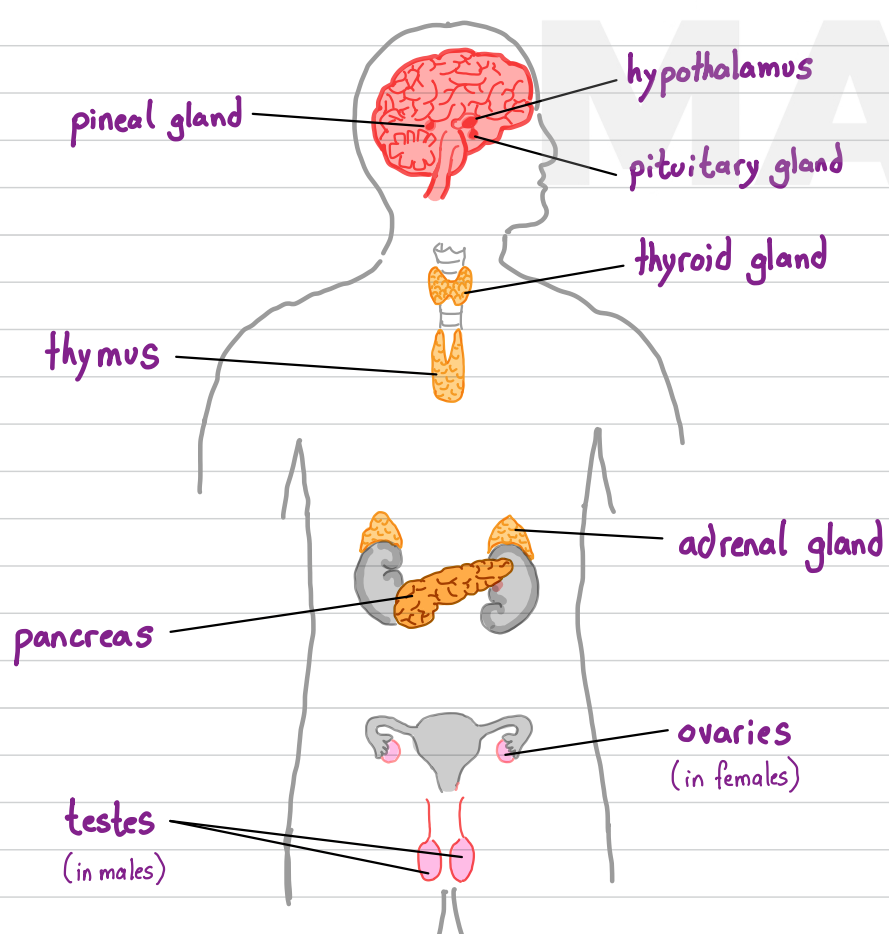 MA
hypothalamus
pineal gland
pituitary gland
thyroid gland
thymus
adrenal gland
pancreas
ovaries
(in females)
testes
(in males)